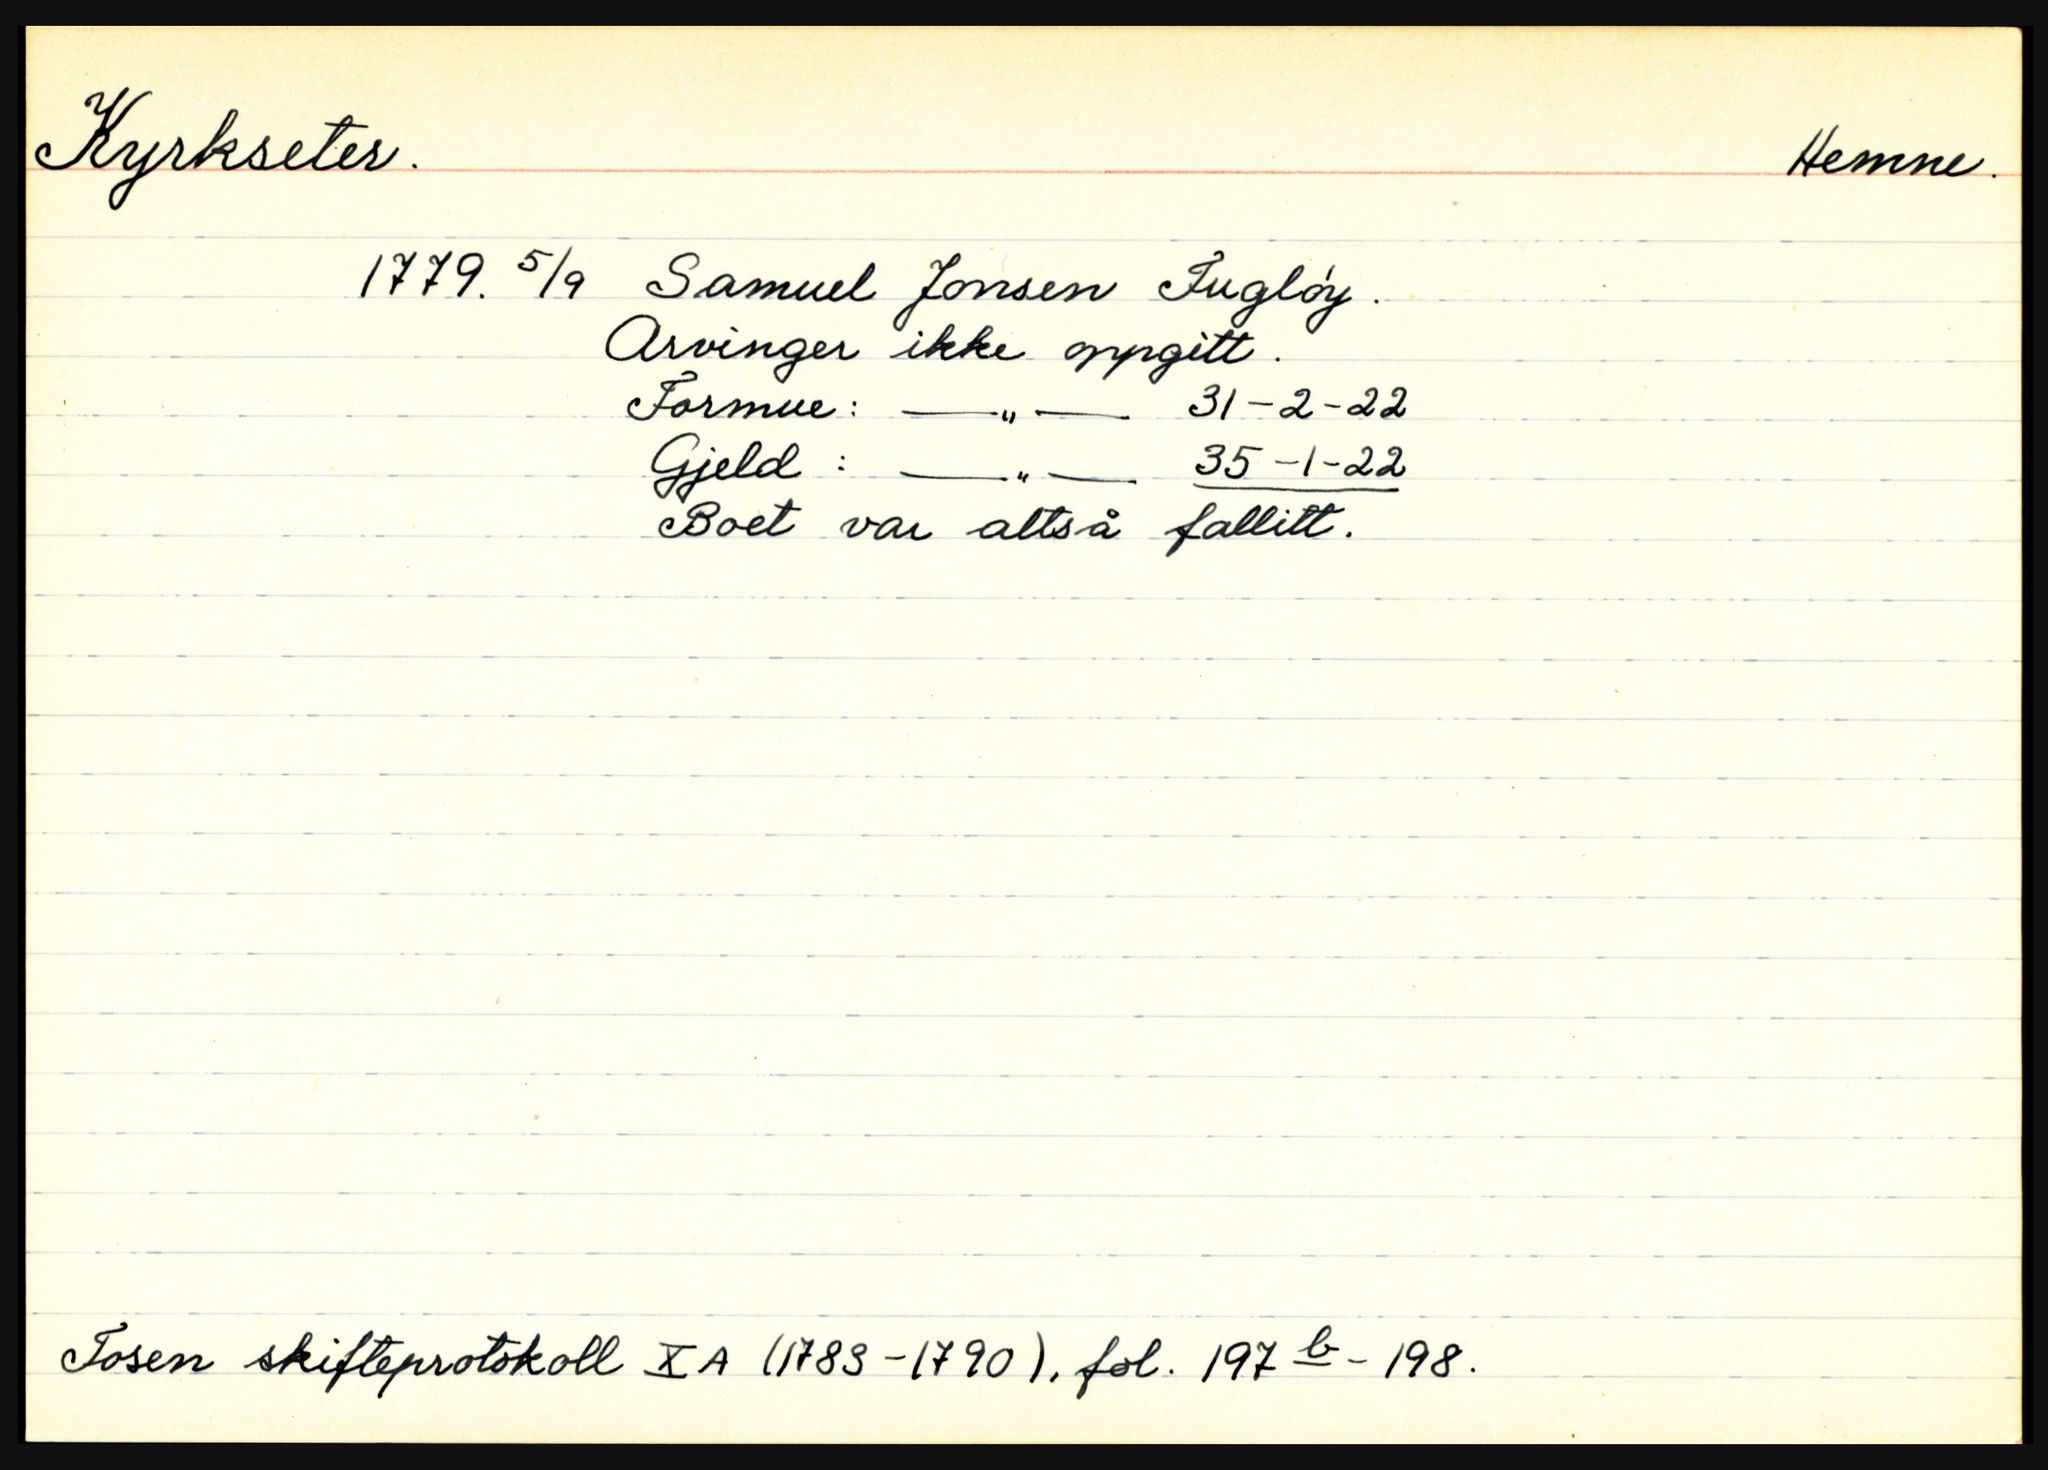 Kyrkseter. Hemne.
1779. 5/9 Samuel Jonsen Fugløy.
Arvinger ikke oppgitt.
Formue: —„— 31-2-22
Gjeld : —„— 35-1-22
Boet var altså fallitt.
Fosen skifteprotokoll X A (1783-1790), fol. 197 b - 198.